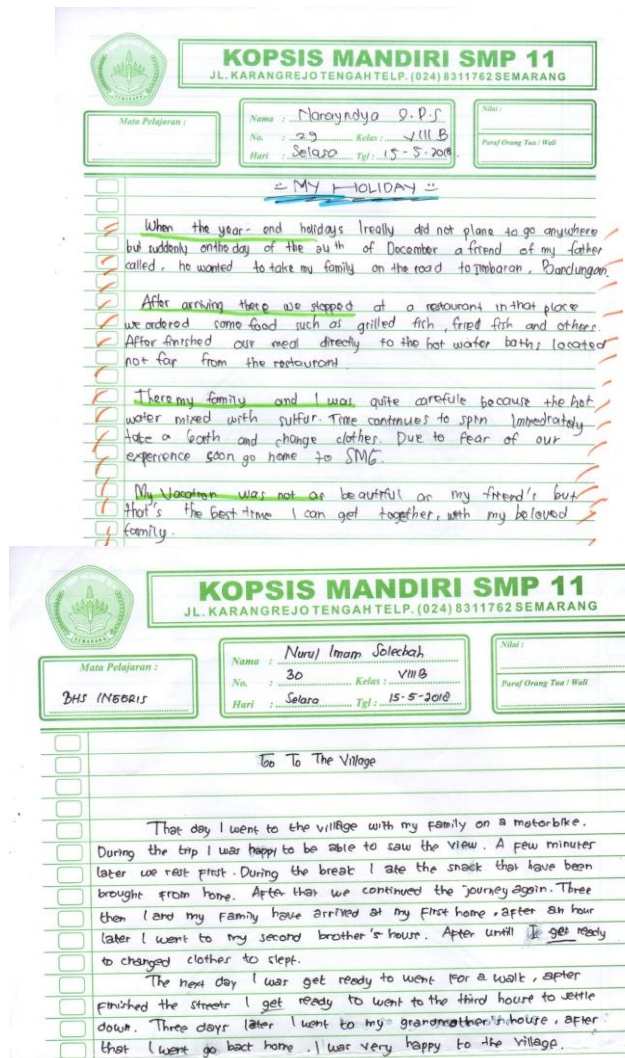 KOPSIS MANDIRI SMP 11
JL. KARANGREJO TENGAH TELP. (024) 8311762 SEMARANG
Mata Pelajaran :
Nama : Narayndya D.P.S
No. : 29 Kelas : VIII B
Hari : Selasa Tgl : 15-5-2018
Nilai :
Paraf Orang Tua / Wali
MY HOLIDAY
When the year-end holidays I really did not plane to go anywhere
but suddenly on the day of the 24th of December a friend of my father
called, he wanted to take my family on the road to Jimbaran, Bandungan.
After arriving there we stopped at a restaurant in that place
we ordered some food such as grilled fish, fried fish and others.
After finished our meal directly to the hot water baths located
not far from the restaurant.
There my family and I was quite carefule because the hot
water mixed with sulfur. Time continues to spin Immediately
take a bath and change clothes. Due to fear of our
experience soon go home to SMG.
My Vacation was not as beautiful as my friend's but
that's the best time I can get together, with my beloved
family.
KOPSIS MANDIRI SMP 11
JL. KARANGREJO TENGAH TELP. (024) 8311762 SEMARANG
Mata Pelajaran :
BHS INGGRIS
Nama : Nurul Imam Solechah
No. : 30 Kelas : VIII B
Hari : Selasa Tgl : 15-5-2018
Nilai :
Paraf Orang Tua / Wali
Go To The Village
That day I went to the village with my family on a motorbike.
During the trip I was happy to be able to saw the view. A few minutes
later we rest first. During the break I ate the snack that have been
brought from home. After that we continued the journey again. Three
then I and my family have arrived at my first home, after an hour
later I went to my second brother's house. After untill I get ready
to changed clothes to slept.
The next day I was get ready to went for a walk, after
finished the streets I get ready to went to the third house to settle
down. Three days later I went to my grandmother's house, after
that I went go back home. I was very happy to the village.